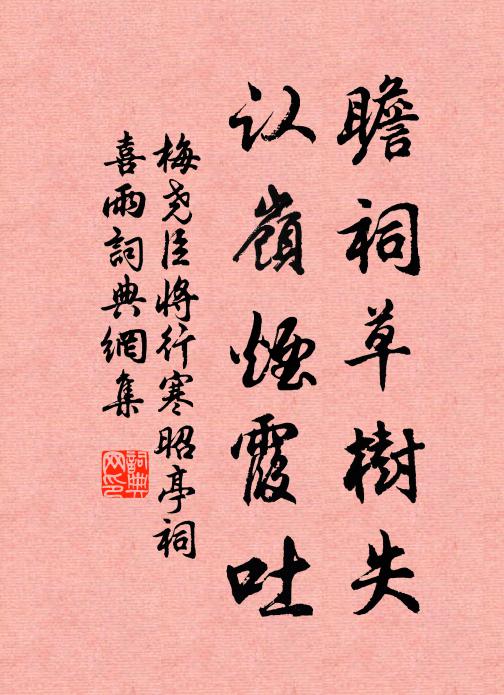 瞻祠草樹失
认嶺煙霞吐
梅尧臣將行寒昭亭祠
喜雨詞典網集
詞典网印